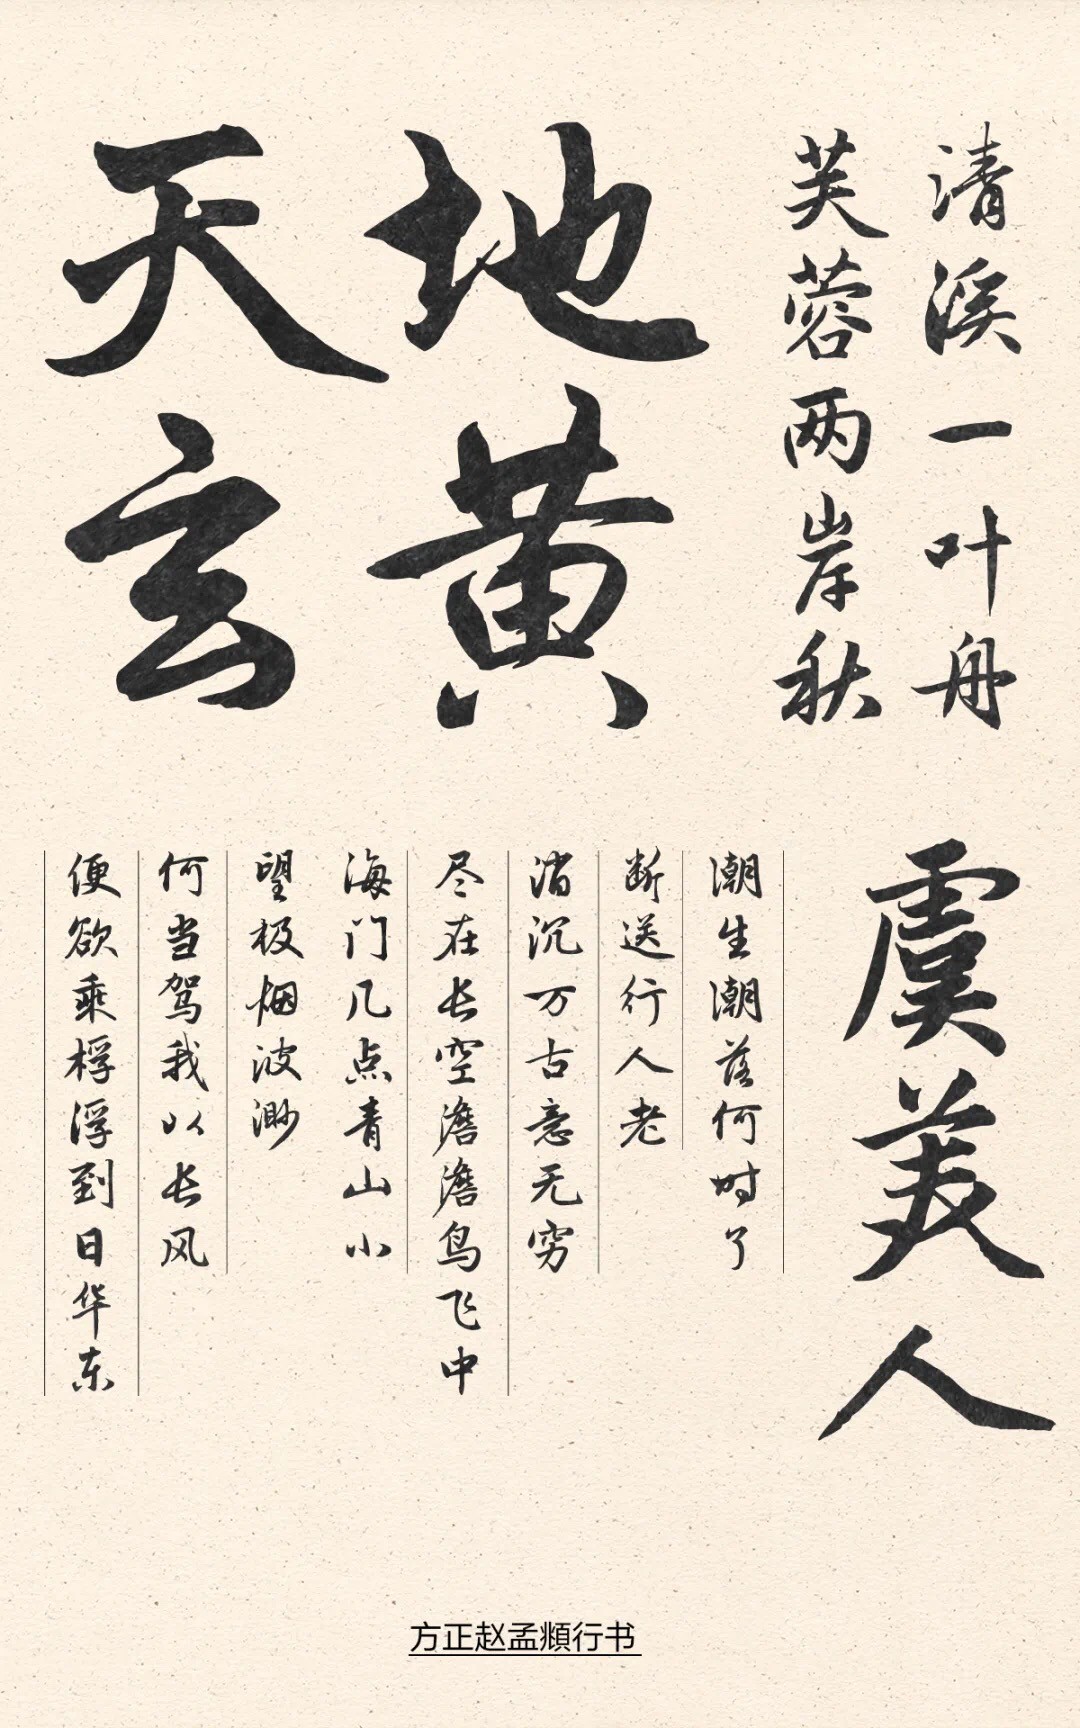 清溪一叶舟
芙蓉两岸秋
天地
玄黄
虞美人
潮生潮落何时了
断送行人老
消沉万古意无穷
尽在长空澹澹鸟飞中
海门几点青山小
望极烟波渺
何当驾我以长风
便欲乘桴浮到日华东
方正赵孟頫行书